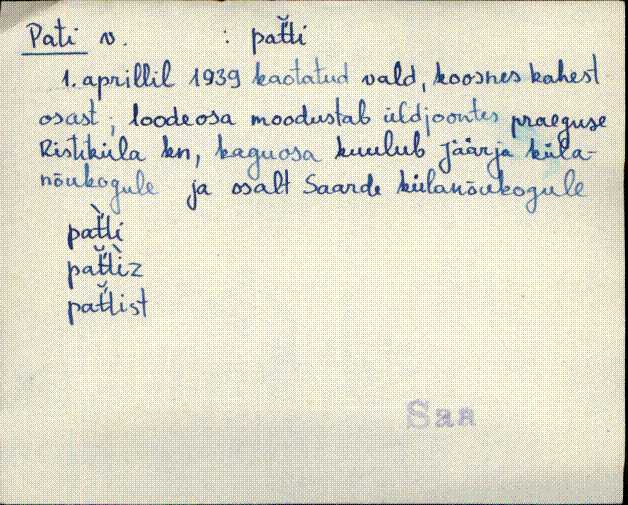 Pati v. : pat̆ti
1. aprillil 1939 kaotatud vald, koosnes kahest
osast; loodeosa moodustab üldjoontes praeguse
Ristiküla kn, kaguosa kuulub Jäärja küla-
nõukogule ja osalt Saarde külanõukogule
pat̆ti
pat̆tìz
pat̆tist
Saa